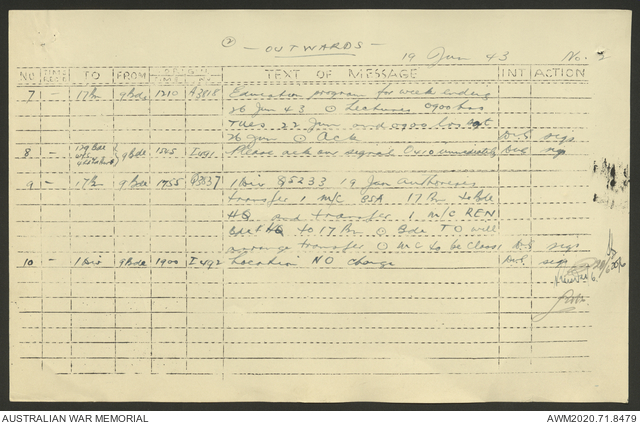 ② - OUTWARDS -
19 Jun 43 No. 2
NO TIME RECD TO FROM ORIGINS TIME NO TEXT OF MESSAGE INT ACTION
7 - 17 Bn 9 Bde 1210 A3818 Education program for week ending
26 Jun 43 ⊙ Lectures 0900 hrs
Tues 22 Jun and 0900 hrs Sat
26 Jun ⊙ Ack DWS sigs
8 - 9 Bde 1505 Please ack our signal immediately DWS sigs
9 - 17 Bn 9 Bde 1755 1 Div 19 Jun authorises
transfer 1 m/c BSA 17 Bn to Bde
HQ and transfer 1 m/c REN
HQ to 17 Bn ⊙ Bde TO will
arrange transfer ⊙ MC to be Class 1 DWS sigs
10 - 1 Div 9 Bde 1900 I492 Location NO change DWS sigs
AUSTRALIAN WAR MEMORIAL AWM2020.71.8479